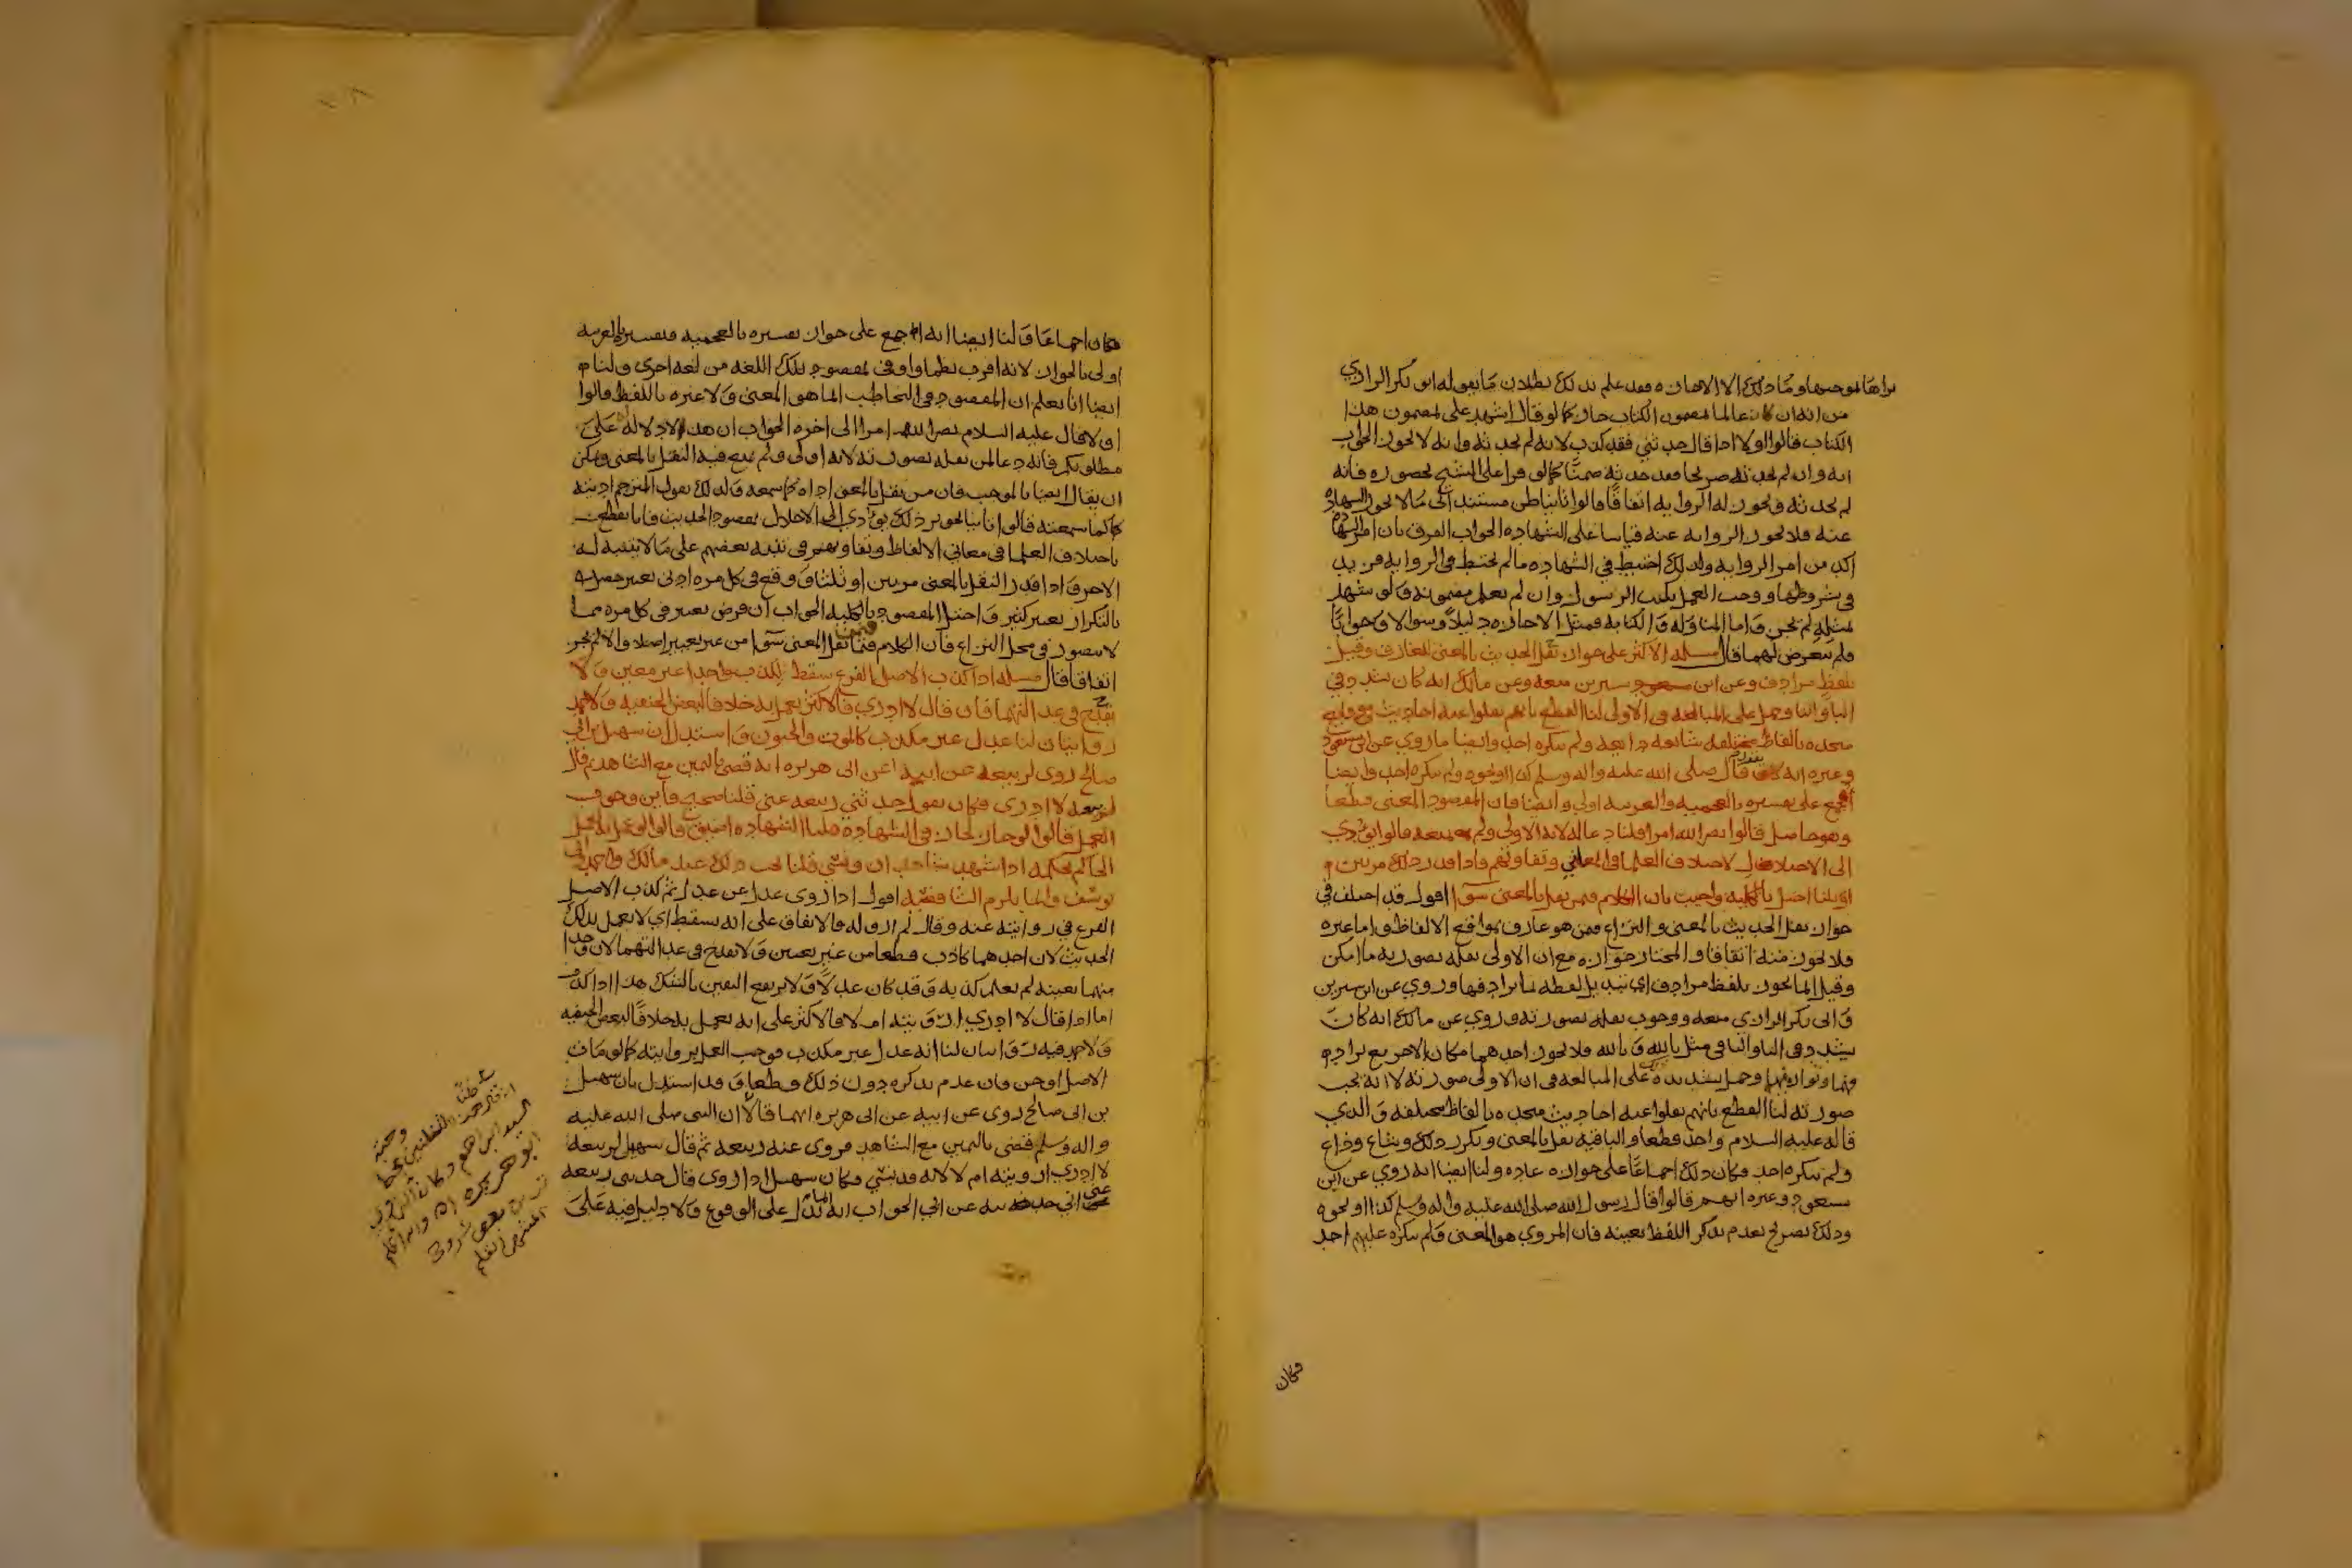 يراها موجبها وما ذلك الا الاهانه وفقد علم بذلك بطلان ما يقوله ابو بكر الرازي
من انه ان كان عالما بمضمون الكتاب جاز كما لو قال اشهد على مضمون هذا
الكتاب قالوا اولا اذا قال حدثني فقد كذب لانه لم يحدثه وانه لا يجوز الجواب
انه وان لم يحدثه صريحا فقد حدثه ضمنا كما لو قرا على الشيخ بحضوره فانه
لم يحدثه ويجوز له الروايه اتفاقا قالوا ثانيا ظن مستند الى ما لا يجوز الشهاده
عنه فلا يجوز الروايه عنه قياسا على الشهاده الجواب الفرق بان امر الشهاده
اكد من امر الروايه ولذلك احتيط في الشهاده ما لم يحتط في الروايه فزيد
في شروطها ووجب العمل بكتب الرسول وان لم يعلم مضمونه ولو شهد
بمثله لم يجز واما المناوله والكتابه فمثل الاجازه دليلا وسوالا وجوابا
ولم يتعرض لهما قال مسله الاكثر على جواز نقل الحديث بالمعنى للعارف وقيل
بلفظ مرادف وعن ابن سيرين منعه وعن مالك انه كان يشدد في
البا والتا وحمل على المبالغه في الاولى لنا القطع بانهم نقلوا عنه احاديث في وقايع
متحده بالفاظ مختلفه شايعه ذايعه ولم ينكره احد وايضا ما روي عن ابن مسعود
وغيره انه قال صلى الله عليه واله وسلم كذا او نحوه ولم ينكره احد وايضا
اجمع على تفسيره بالعجميه والعربيه اولى وايضا فان المقصود المعنى قطعا
وهو حاصل قالوا نضر الله امرا قلنا دعا له لانه الاولى ولم يمنعه قالوا يودي
الى الاخلال لاختلاف العلما في المعاني وتفاوتهم فاذا قدر ذلك مرتين
او ثلثا اختل بالكليه واجيب بان الكلام فيمن نقل بالمعنى سوا اقول قد اختلف في
جواز نقل الحديث بالمعنى والنزاع فيمن هو عارف بمواقع الالفاظ واما غيره
فلا يجوز منه اتفاقا والمختار جوازه مع ان الاولى نقله بصورته ما امكن
وقيل انما يجوز بلفظ مرادف اي بتبديل لفظه بما يرادفها وروي عن ابن سيرين
وابي بكر الرازي منعه ووجوب نقله بصورته وروي عن مالك انه كان
يشدد في البا والتا في مثل بالله وتالله فلا يجوز احدهما مكان الاخر مع تراد
فهما وتوازنهما وحمل تشديده على المبالغه في ان الاولى صورته لا انه يجب
صورته لنا القطع بانهم نقلوا عنه احاديث متحده بالفاظ مختلفه والذي
قاله عليه السلام واحد قطعا والباقيه نقل بالمعنى وتكرر ذلك وشاع وذاع
ولم ينكره احد فكان ذلك اجماعا على جوازه عاده ولنا ايضا انه روي عن ابن
مسعود وغيره انهم قالوا قال رسول الله صلى الله عليه واله وسلم كذا او نحوه
وذلك تصريح بعدم تذكر اللفظ بعينه فان المروي هو المعنى ولم ينكره عليهم احد
فكان
فكان اجماعا ولنا ايضا انه اجمع على جواز تفسيره بالعجميه فتفسيره بالعربيه
اولى بالجواز لانه اقرب نظما واوفى بمقصود تلك اللغه من لغه اخرى ولنا
ايضا انا نعلم ان المقصود في التخاطب انما هو المعنى ولا عبره باللفظ قالوا
اولا قال عليه السلام نضر الله امرا الى اخره الجواب ان هذا لا دلاله على
مطلوبكم فانه دعا لمن نقله بصورته لانه اولى ولم يمنع فيه النقل بالمعنى ويمكن
ان يقال ايضا بالموجب فان من نقل بالمعنى اداه كما سمعه ولذلك يقول المترجم اديته
كما سمعته قالوا ثانيا تجويز ذلك يودي الى الاخلال بمقصود الحديث فانا نقطع
باختلاف العلما في معاني الالفاظ وتفاوتهم في تنبه بعضهم على ما لا يتنبه له
الاخر فاذا قدر النقل بالمعنى مرتين او ثلثا ووقع في كل مره ادنى تغيير حصل
بالتكرار تغيير كثير واختل المقصود بالكليه الجواب ان فرض تغيير في كل مره مما
لا يتصور في محل النزاع فان الكلام فيمن نقل المعنى سوا من غير تغيير اصلا والا لم يجز
اتفاقا قال مسله اذا كذب الاصل الفرع سقط لكذب واحد غير معين ولا
يقدح في عدالتهما فان قال لا ادري فالاكثر يعمل به خلافا لبعض الحنفيه ولاحمد
روايتان لنا عدل غير مكذب كالموت والجنون واستدل ان سهيل بن ابي
صالح روى لربيعه عن ابيه عن ابي هريره انه قضى باليمين مع الشاهد ثم قال
لربيعه لا ادري فكان يقول حدثني ربيعه عني قلنا صحيح فاين وجوب
العمل قالوا لو جاز لجاز في الشهاده قلنا الشهاده اضيق قالوا لو عمل به لعمل
الحاكم بحكمه اذا شهد شاهدان ونسي قلنا يجب ذلك عند مالك واحمد وابي
يوسف وانما يلزم الشافعيه اقول اذا روى عدل عن عدل ثم كذب الاصل
الفرع في روايته عنه وقال لم اروه له فالاتفاق على انه يسقط اي لا يعمل بذلك
الحديث لان احدهما كاذب قطعا من غير تعيين ولا يقدح في عدالتهما لان واحدا
منهما بعينه لم يعلم كذبه وقد كان عدلا ولا يرفع اليقين بالشك هذا اذا كذبه
اما اذا قال لا ادري ارويته ام لا فالاكثر على انه يعمل به خلافا لبعض الحنفيه
ولاحمد فيه روايتان لنا انه عدل غير مكذب فوجب العمل بروايته كما لو مات
الاصل او جن فان عدم تذكره دون ذلك قطعا وقد استدل بان سهيل
بن ابي صالح روى عن ابيه عن ابي هريره انهما قالا ان النبي صلى الله عليه
واله وسلم قضى باليمين مع الشاهد فروى عنه ربيعه ثم قال سهيل لربيعه
لا ادري ارويته ام لا لانه قد نسي فكان سهيل اذا روى قال حدثني ربيعه
عني اني حدثته عن ابي الجواب انه انما يدل على الوقوع ولا دليل فيه على